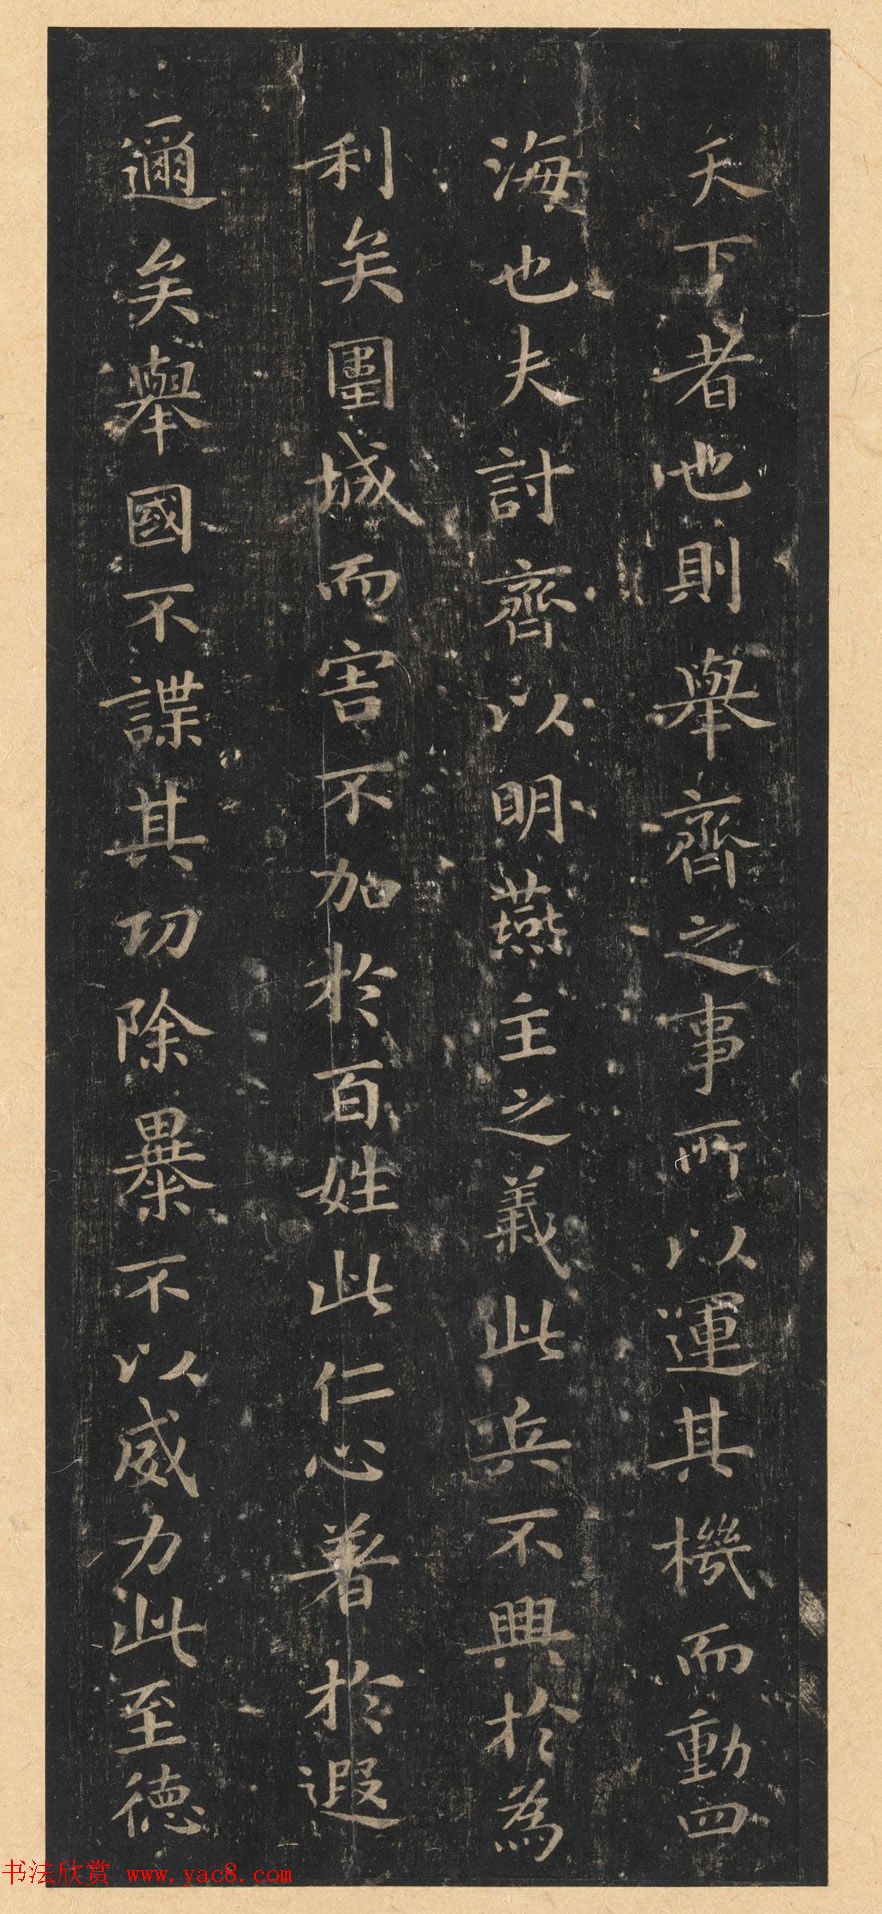 天下者也則舉齊之事所以運其機而動四
海也夫討齊以明燕主之義此兵不興於為
利矣圍城而害不加於百姓此仁心著於遐
邇矣舉國不謀其功除暴不以威力此至德
书法欣赏 www.yac8.com